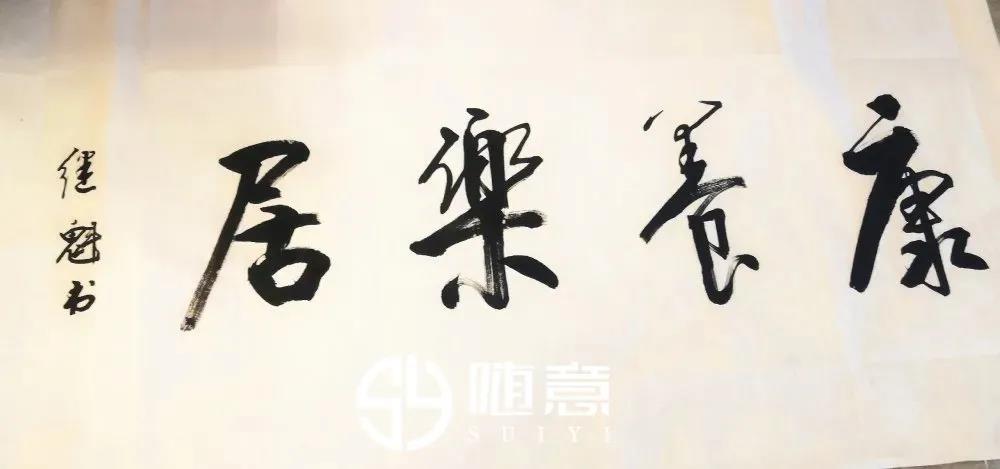 康養樂居
继魁书
随意
SUIYI